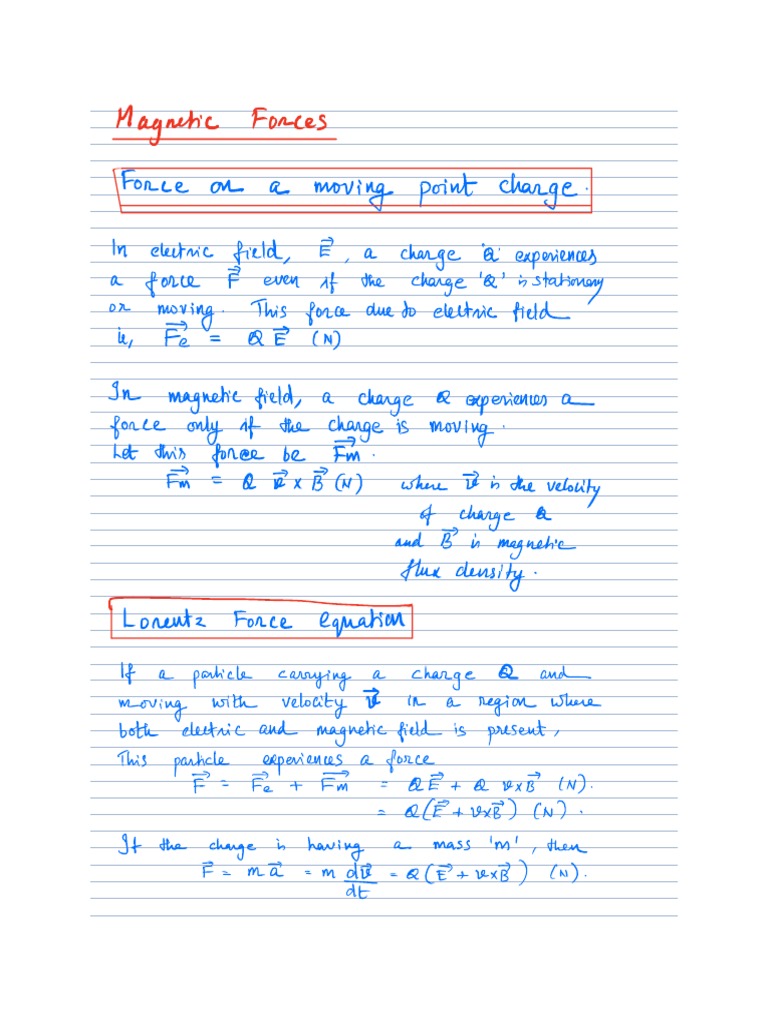 Magnetic Forces
Force on a moving point charge.
In electric field, E⃗, a charge 'Q' experiences
a force F⃗ even if the charge 'Q' is stationary
or moving. This force due to electric field
ie, F⃗e = Q E⃗ (N)
In magnetic field, a charge Q experiences a
force only if the charge is moving.
Let this force be F⃗m.
F⃗m = Q v⃗ × B⃗ (N) where v⃗ is the velocity
of charge Q
and B⃗ is magnetic
flux density.
Lorentz Force equation
If a particle carrying a charge Q and
moving with velocity v⃗ in a region where
both electric and magnetic field is present,
This particle experiences a force
F⃗ = F⃗e + F⃗m = Q E⃗ + Q v×B⃗ (N).
= Q(E⃗ + v×B⃗) (N).
If the charge is having a mass 'm', then
F⃗ = m a⃗ = m dv⃗/dt = Q(E⃗ + v×B⃗) (N).